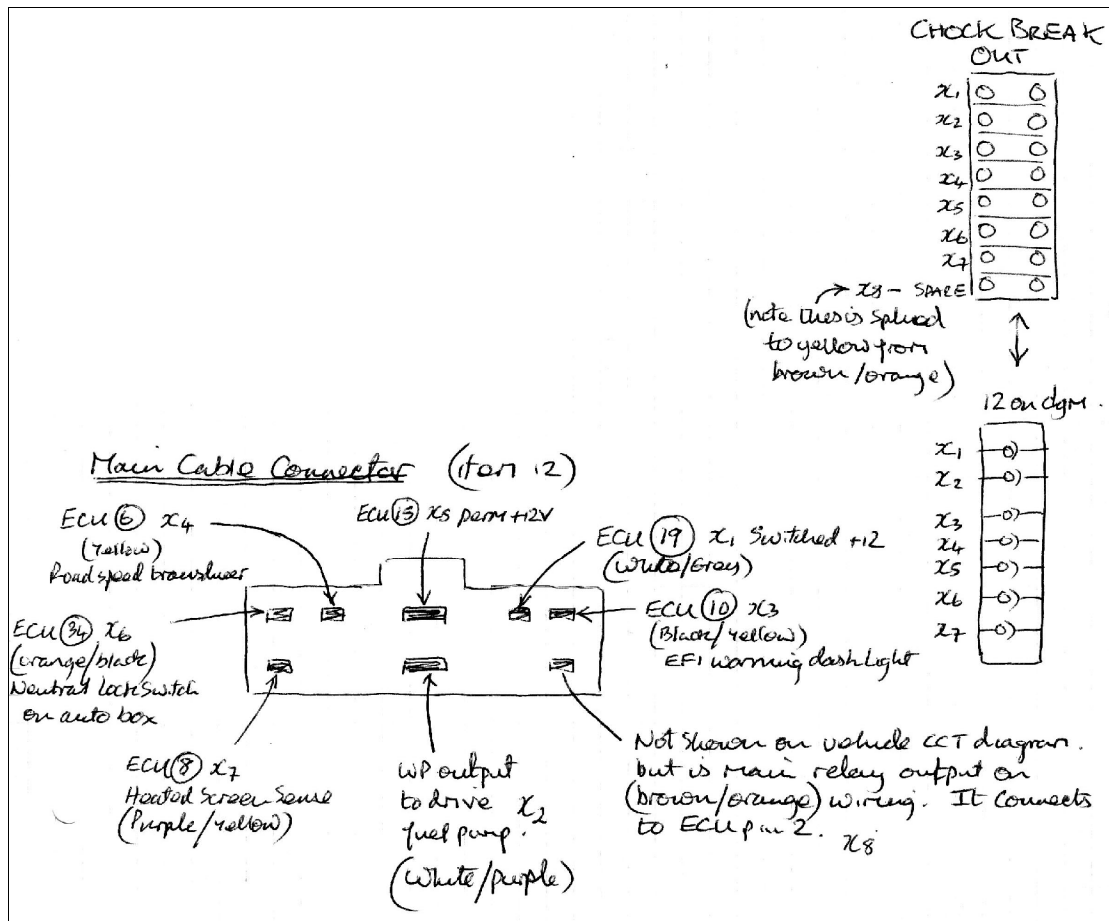 CHOCK BREAK
OUT
x1
x2
x3
x4
x5
x6
x7
x8 - SPARE
(note this is spliced
to yellow from
brown/orange)
12 on dgm.
x1
x2
x3
x4
x5
x6
x7
Main Cable Connector (item 12)
ECU 6 x4
(Yellow)
Road speed transducer
ECU 13 x5 perm +12V
ECU 19 x1 Switched +12
(White/Grey)
ECU 34 x6
(orange/black)
Neutral lock Switch
on auto box
ECU 10 x3
(Black/Yellow)
EFI warning dash light
ECU 8 x7
Heated Screen Sense
(Purple/Yellow)
WP output
to drive x2
fuel pump.
(White/purple)
Not Shown on vehicle CCT diagram.
but is main relay output on
(brown/orange) wiring. It connects
to ECU pin 2. x8